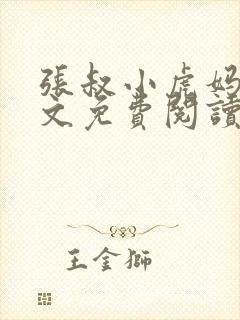 張叔小虎媽
文免費閱讀
王金獅